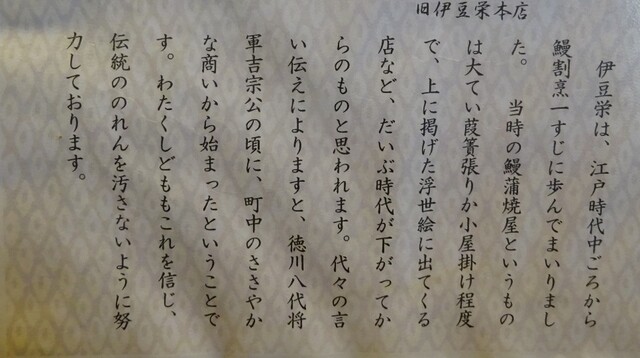 旧伊豆栄本店
伊豆栄は、江戸時代中ごろから
鰻割烹一すじに歩んでまいりまし
た。　当時の鰻蒲焼屋というもの
は大てい葭簀張りか小屋掛け程度
で、上に掲げた浮世絵に出てくる
店など、だいぶ時代が下がってか
らのものと思われます。代々の言
い伝えによりますと、徳川八代将
軍吉宗公の頃に、町中のささやか
な商いから始まったということで
す。わたくしどももこれを信じ、
伝統ののれんを汚さないように努
力しております。